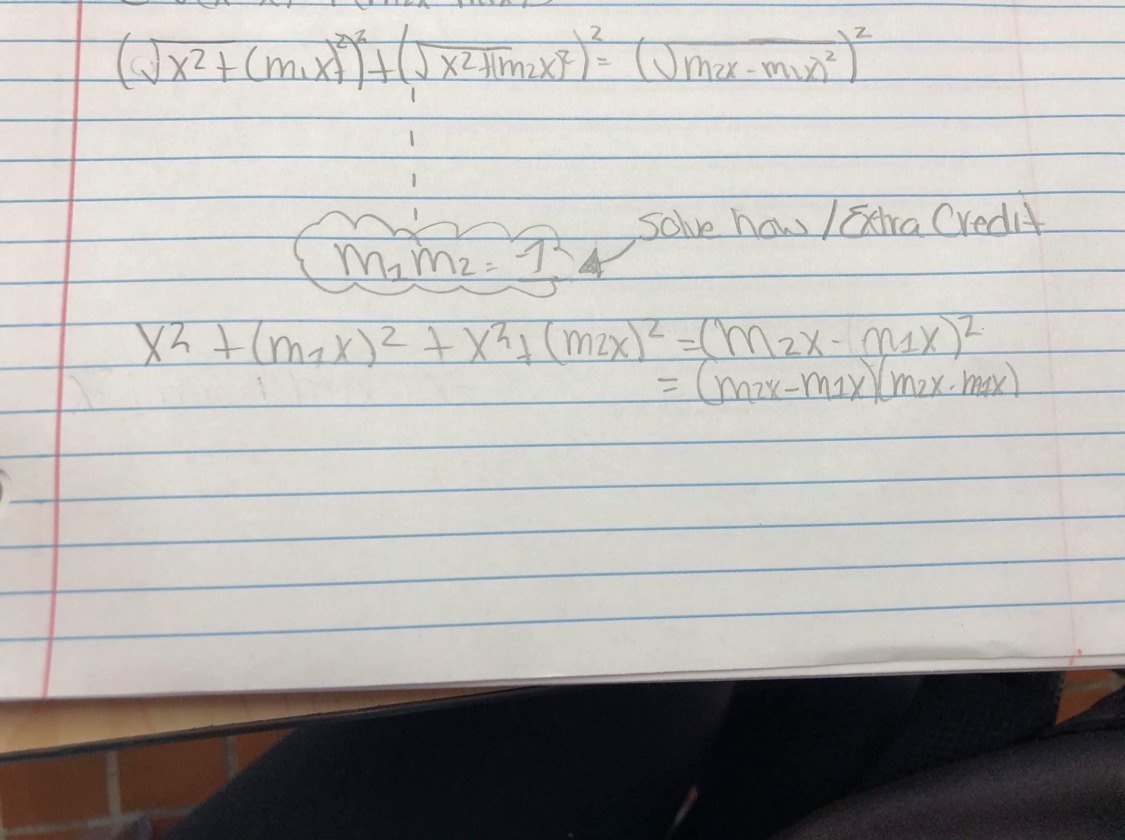 (√x² + (m₁x)²)² + (√x²+(m₂x)²)² = (√m₂x - m₁x)²)²
Solve now / Extra Credit
m₁m₂ = -1
x² + (m₁x)² + x² + (m₂x)² = (m₂x - m₁x)²
= (m₂x - m₁x)(m₂x - m₁x)